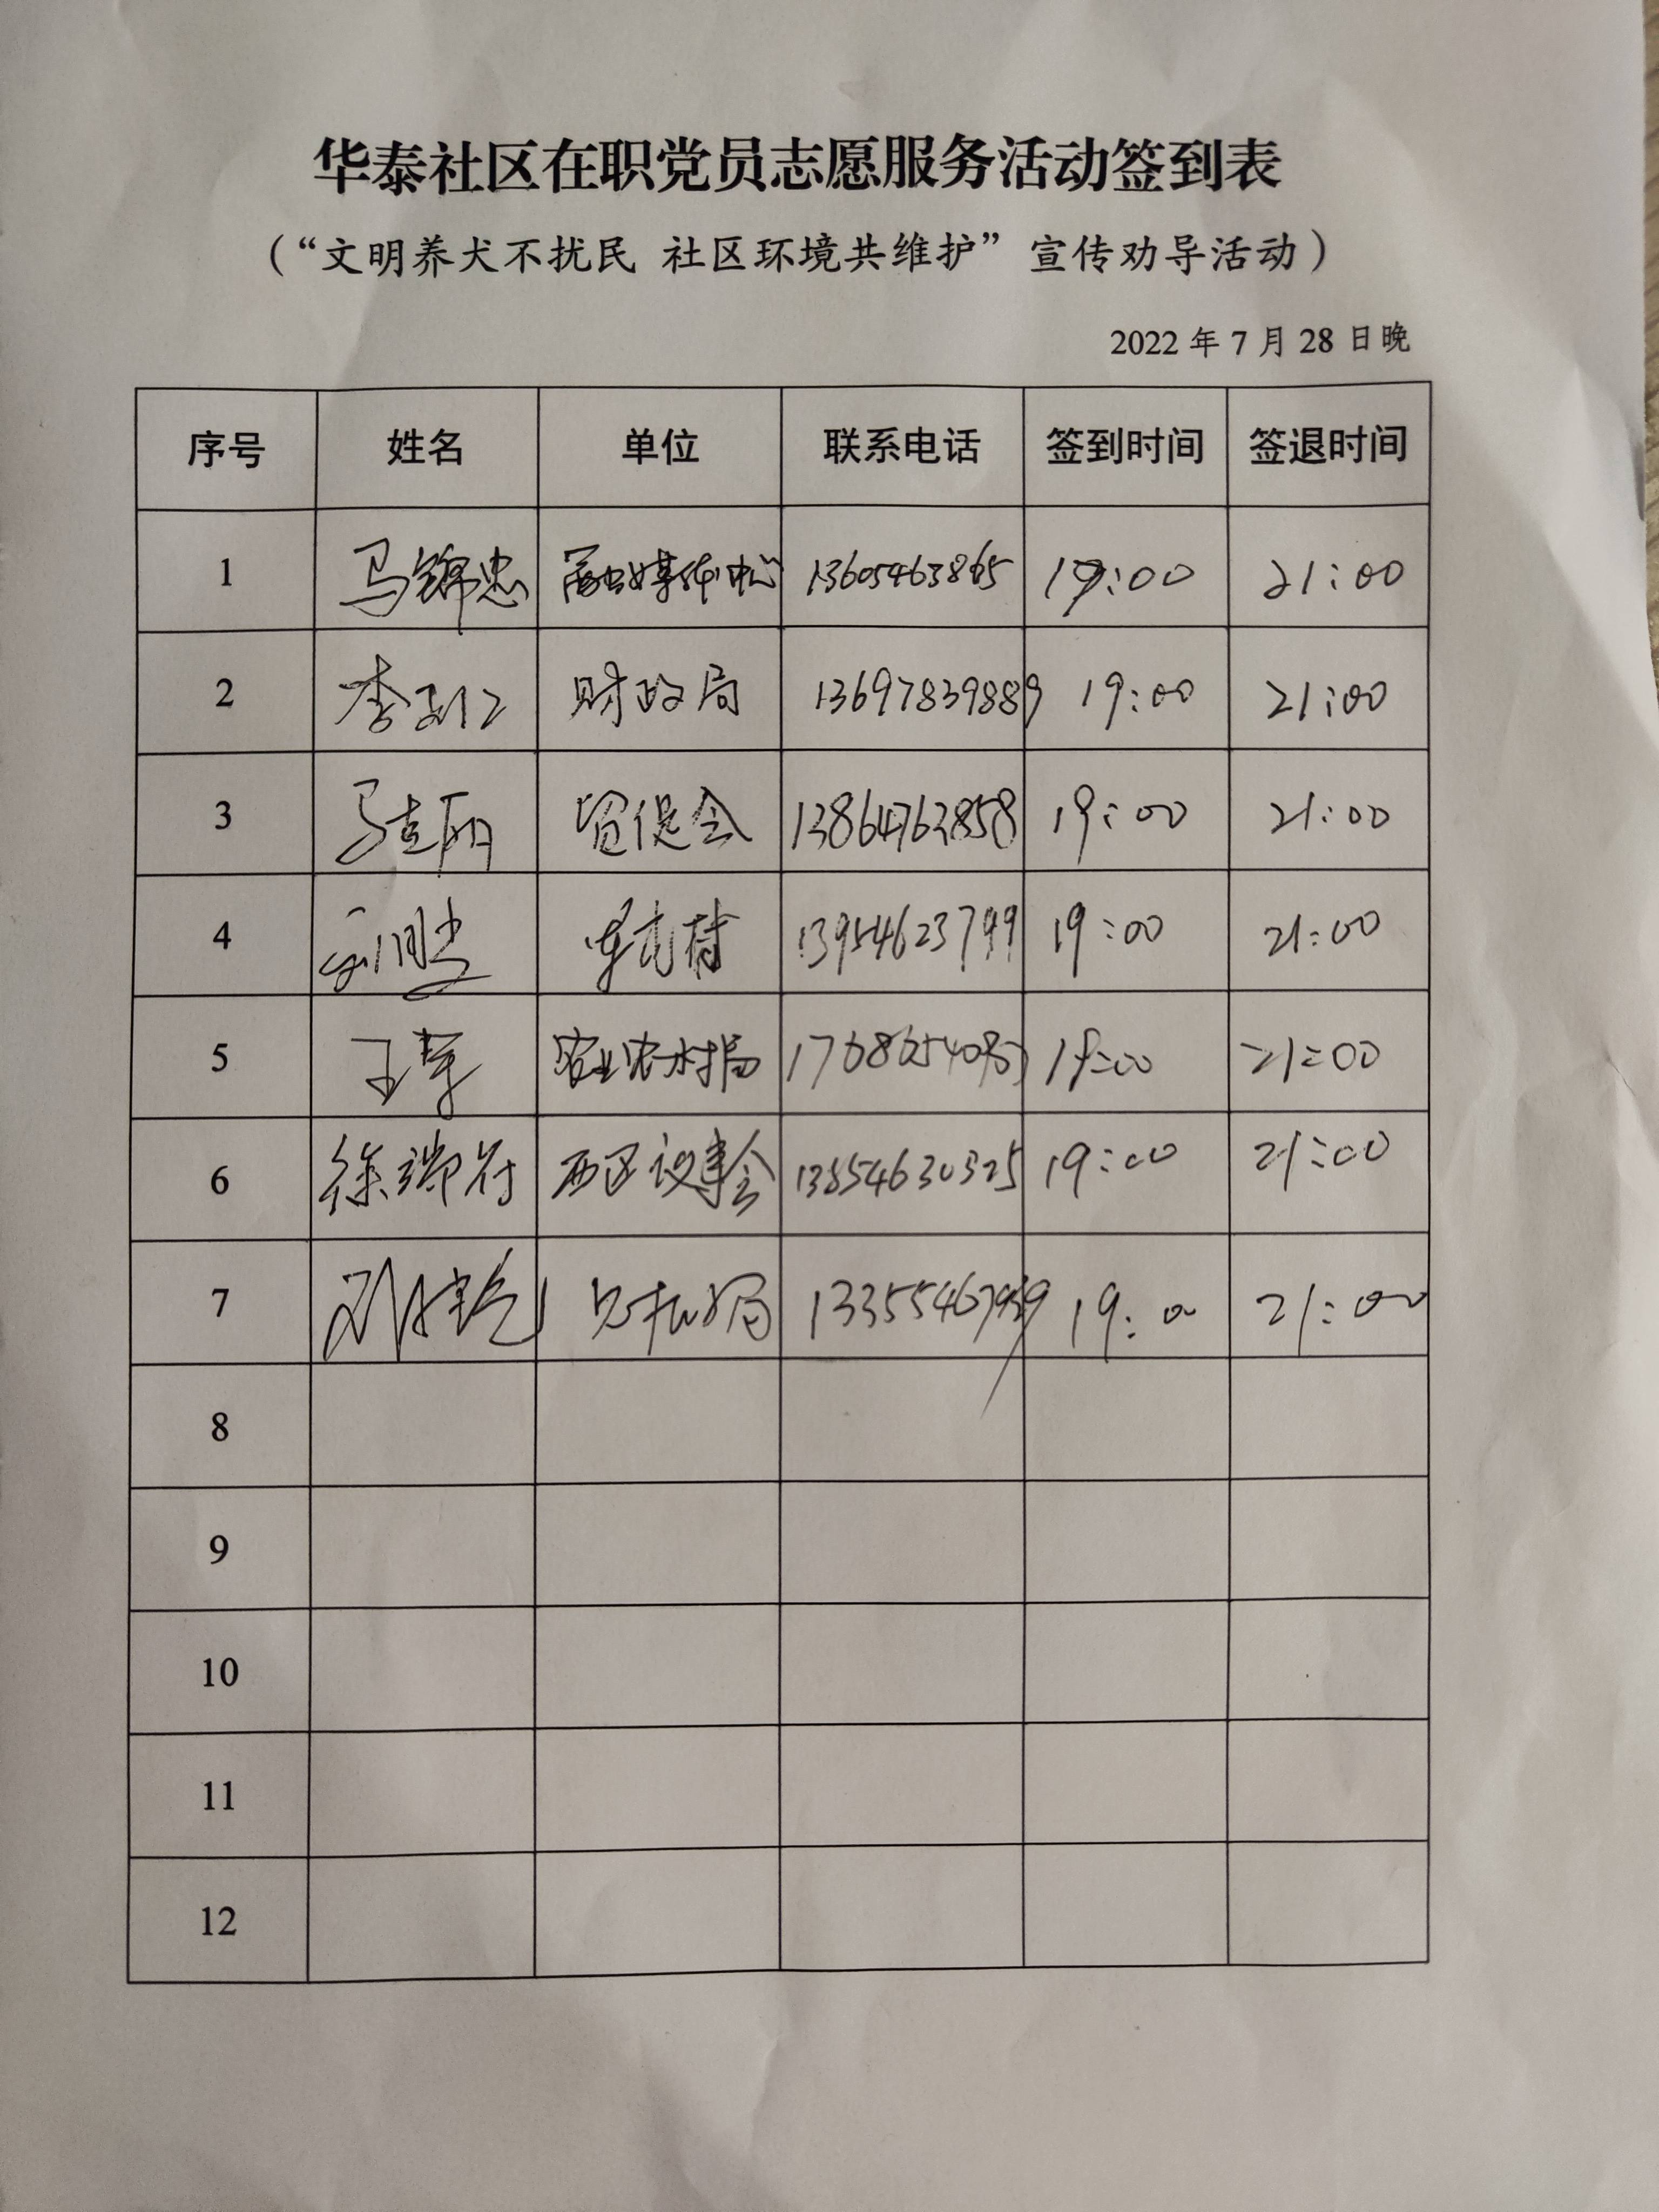 华泰社区在职党员志愿服务活动签到表
（“文明养犬不扰民 社区环境共维护”宣传劝导活动）
2022 年 7 月 28 日晚
序号 姓名 单位 联系电话 签到时间 签退时间
1 马锦忠 融媒体中心 13605463865 19:00 21:00
2 李 财政局 13697839889 19:00 21:00
3 马 贸促会 13864763858 19:00 21:00
4 刘 13954623799 19:00 21:00
5 王 农业农村局 19:00 21:00
6 徐瑞符 西区议事会 13854630325 19:00 21:00
7 19:00 21:00
8
9
10
11
12